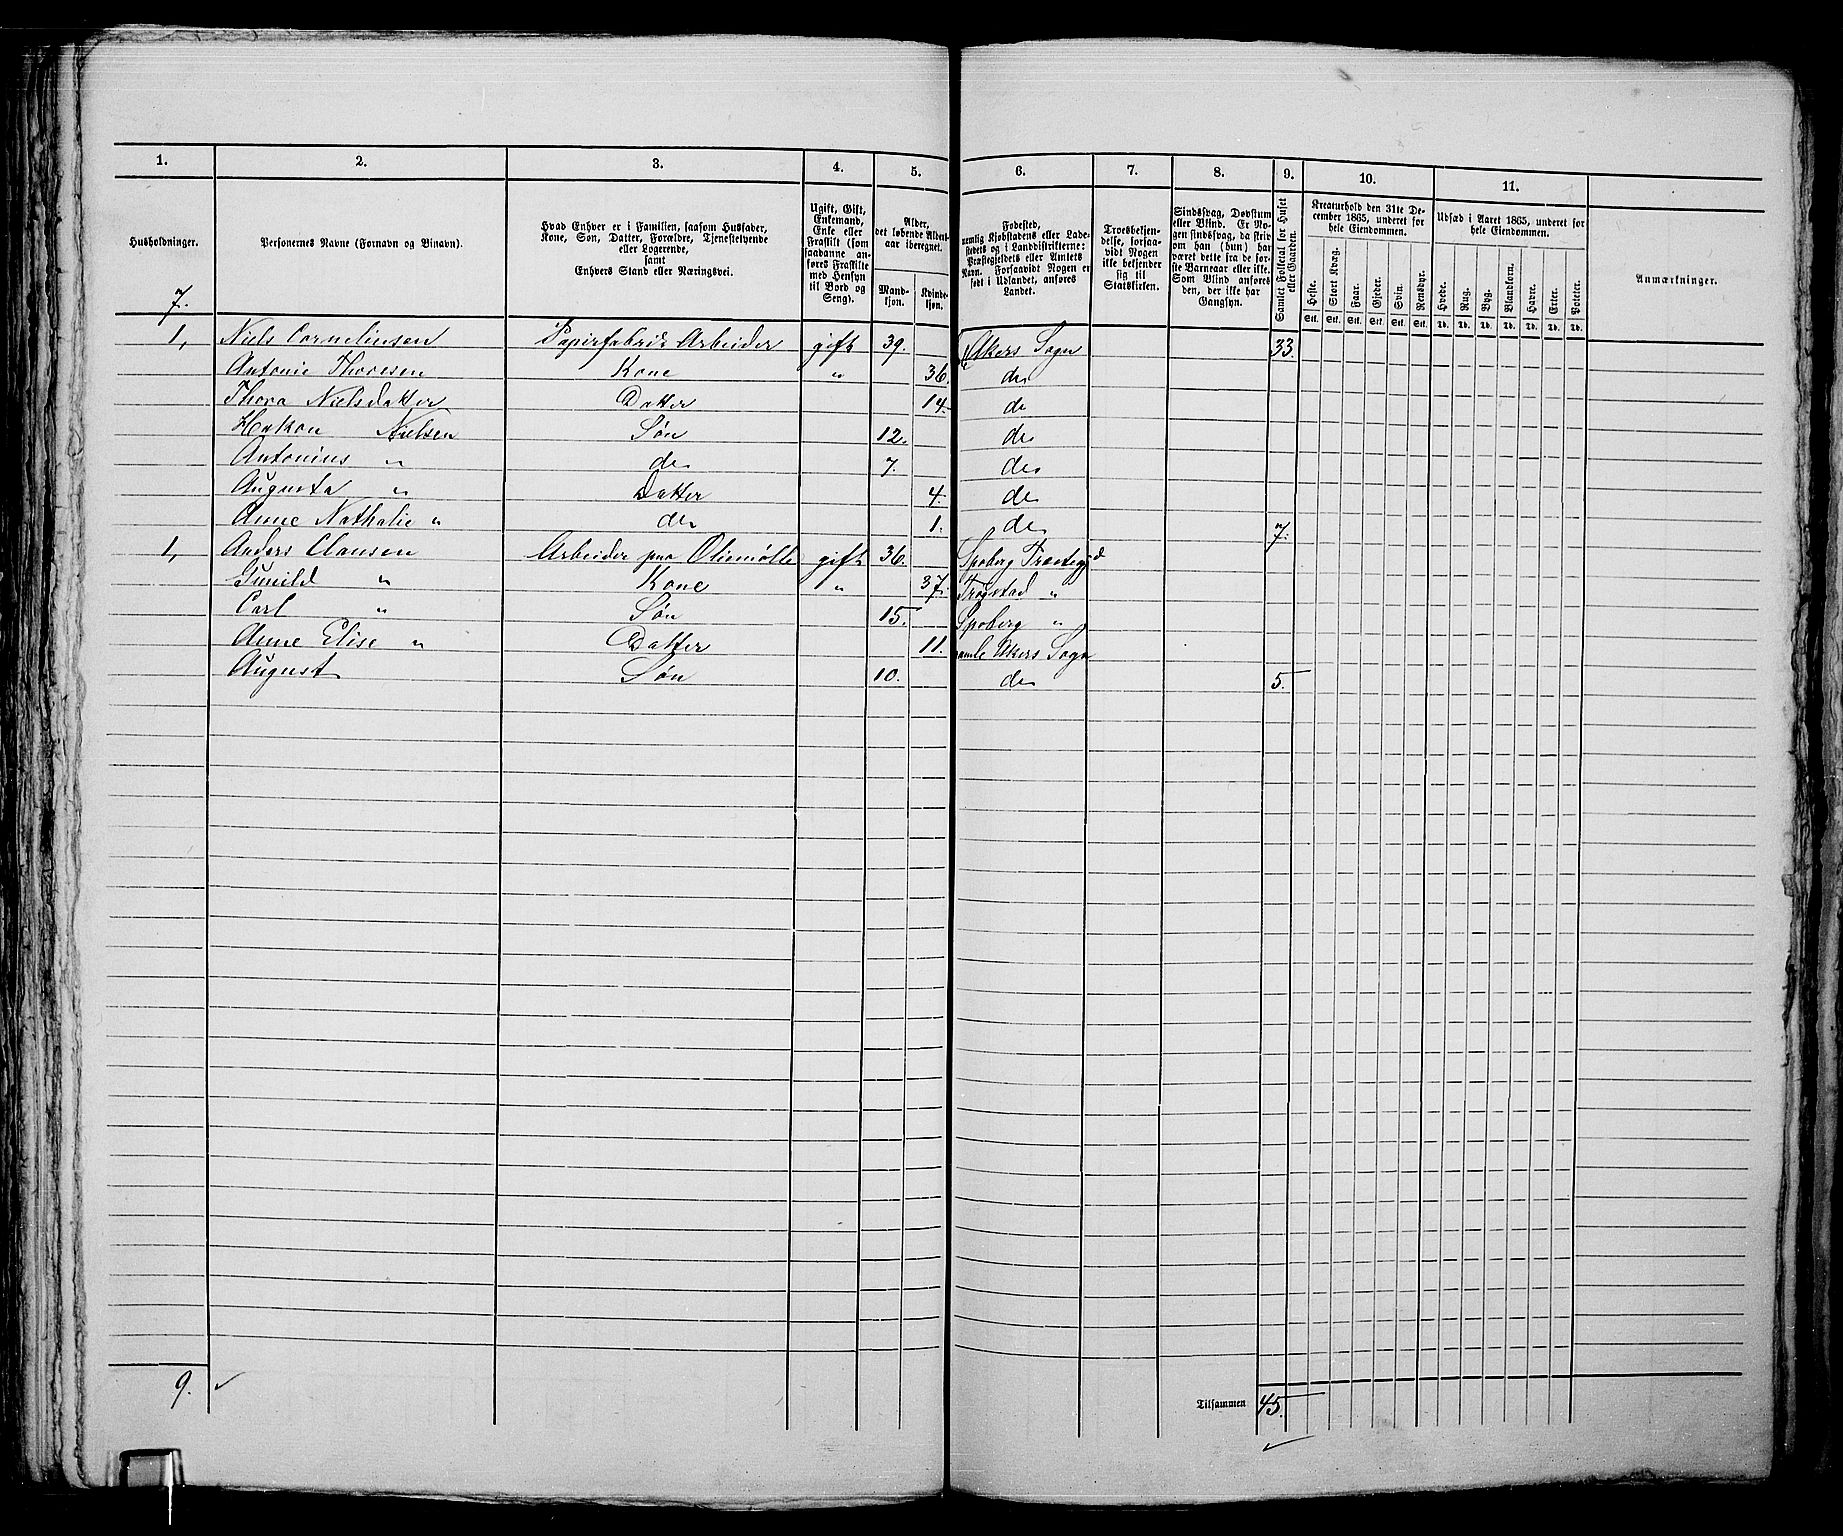 1. 2. 3. 4. 5. 6. 7. 8. 9. 10. 11.
Husholdninger.
Personernes Navne (Fornavn og Binavn).
Hvad Enhver er i Familien, saasom Husfader,
Kone, Søn, Datter, Forældre, Tjenestetyende
eller Logerende,
samt
Enhvers Stand eller Næringsvei.
Ugift, Gift,
Enkemand,
Enke eller
Fraskilt (som
saadanne an-
føres Fraskilte
med Hensyn
til Bord og
Seng).
Alder,
det løbende Alders-
aar iberegnet.
Mand-
kjøn.
Kvinde-
kjøn.
Fødested,
nemlig Kjøbstadens eller Lade-
stedets og i Landdistrikterne:
Præstegjeldets eller Amtets
Navn. Forsaavidt Nogen er
født i Udlandet, anføres
Landet.
Troesbekjen-
delse, forsaa-
vidt Nogen
ikke bekjender
sig til
Statskirken.
Sindssvag, Døvstum
eller Blind. Er No-
gen sindssvag, da skriv
om han (hun) har
været dette fra de før-
ste Barneaar eller ikke.
Som Blind anføres
den, der ikke har
Gangsyn.
Samlet Folketal for Huset
eller Gaarden.
Kreaturhold den 31te De-
cember 1865, underet for
hele Eiendommen.
Heste. Stort Kvæg. Faar. Gjeder. Svin. Rensdyr.
Stk. Stk. Stk. Stk. Stk. Stk.
Udsæd i Aaret 1865, underet for
hele Eiendommen.
Hvede. Rug. Byg. Blandkorn. Havre. Erter. Poteter.
Td. Td. Td. Td. Td. Td. Td.
Anmærkninger.
7. 33.
1, Niels Cornelinsen Papirfabrik Arbeider gift 39. Akers Sogn
Antonie Thoresen Kone " 36. do
Thora Nielsdatter Datter 14. do
Hakon Nielsen Søn 12. do
Antonius " do 7. do
Augusta " Datter 4. do
Anne Nathalie " do 1. do 7.
1, Anders Clausen Arbeider paa Oliemølle gift 36. Spoberg Præstegjd
Gunild " Kone " 37. Trøgstad "
Carl " Søn 15. Spoberg "
Anne Elise " Datter 11. gamle Akers Sogn
August Søn 10. do 5.
9. Tilsammen 45.